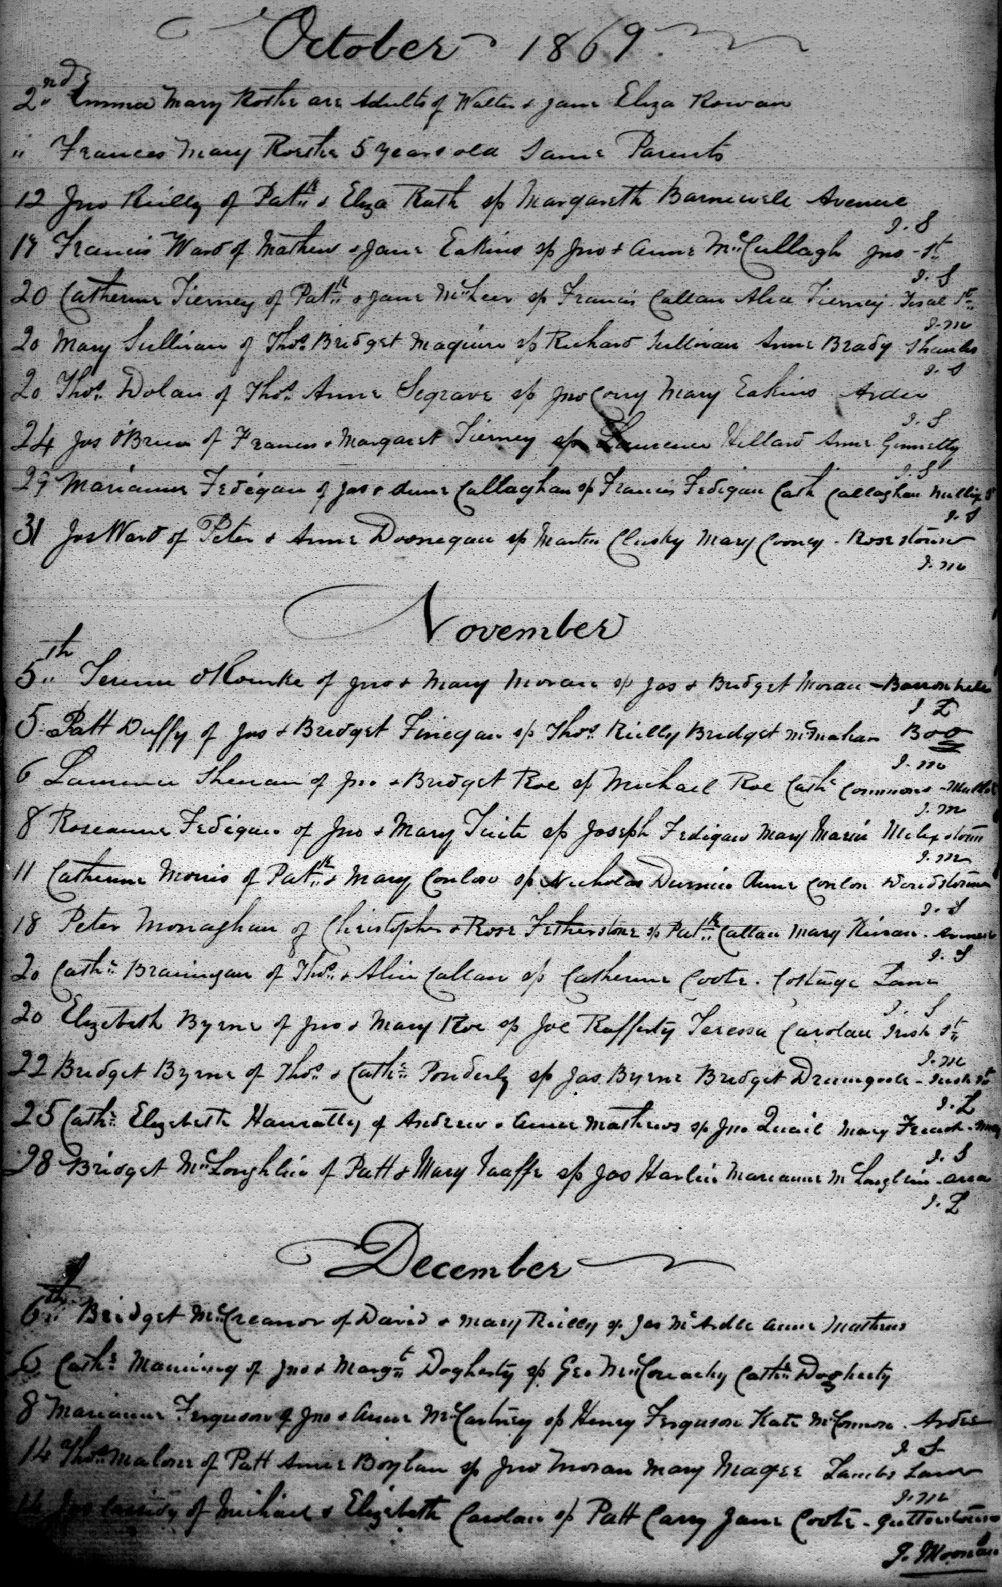 October 1869
2nd Emma Mary Rostre are Adults of Walter & Jane Eliza Rowan
" Frances Mary Rostre 5 years old Same Parents
12 Jno Reilly of Patk & Eliza Rath sp Margareth Barnewell Avenue
J. S
17 Francis Ward of Mathew & Jane Eakins sp Jno & Anne McCullagh Jno - St
J. S
20 Catherine Tierney of Patk & Jane McKeer sp Francis Callan Alice Tierney St
J. M
20 Mary Sullivan of Thos Bridget Maguire sp Richard Sullivan Anne Brady Shanlis
J. S
20 Thos Dolan of Thos Anne Segrave sp Jno Corry Mary Eakins Ardee
J. S
24 Jas O'Brien of Francis & Margaret Tierney sp Laurence Hillard Anne Ginnetty
J. S
29 Marianne Fedigan of Jas & Anne Callaghan sp Francis Fedigan Cath Callaghan
J. S
31 Jas Ward of Peter & Anne Doonegan sp Martin Clusky Mary Cooney - Rosestown
J. M
November
5th Terence O'Rourke of Jno & Mary Moran sp Jas & Bridget Moran -
J L
5 Patt Duffy of Jas & Bridget Finegan sp Thos Reilly Bridget McMahan Bog
J. M
6 Laurence Shenan of Jno & Bridget Roe sp Michael Roe Cathe Commons -
J. M
8 Roseanne Fedigan of Jno & Mary Tuite sp Joseph Fedigan Mary Marin
J. M
11 Catherine Morris of Patk & Mary Conlon sp Nicholas Durnin Anne Conlon
J. S
18 Peter Monaghan of Christopher & Rose Fetherstone sp Patk Callan Mary Kieran.
J. S
20 Cathe Brannigan of Thos & Alice Callan sp Catherine Coote. Cottage Lane
J. S
20 Elizabeth Byrne of Jno & Mary Roe sp Joe Rafferty Teressa Carolan Irish St
J. M
22 Bridget Byrne of Thos & Cathe Ponderly sp Jas Byrne Bridget Drumgoole - Irish St
J. L
25 Cathe Elizabeth Hanratty of Andrew & Anne Mathews sp Jno Quail Mary
J. S
28 Bridget McLoughlin of Patt & Mary Taaffe sp Jas Harlin Marianne McLoughlin -
J. L
December
6th Bridget McCreanor of David & Mary Reilly sp Jas McArdle Anne Mathews
6 Cathe Manning of Jno & Margt Dogherty sp Geo McConachy Cathe Dogherty
8 Marianne Ferguson of Jno & Anne McCartney sp Henry Ferguson Kate McConnon Ardee
J. S
14 Thos Malone of Patt Anne Boylan sp Jno Moran Mary Magee Lambs Lane
J. M
Jas Cassidy of Michael & Elizabeth Carolan sp Patt Carry Jane Coote -
J. Moonan